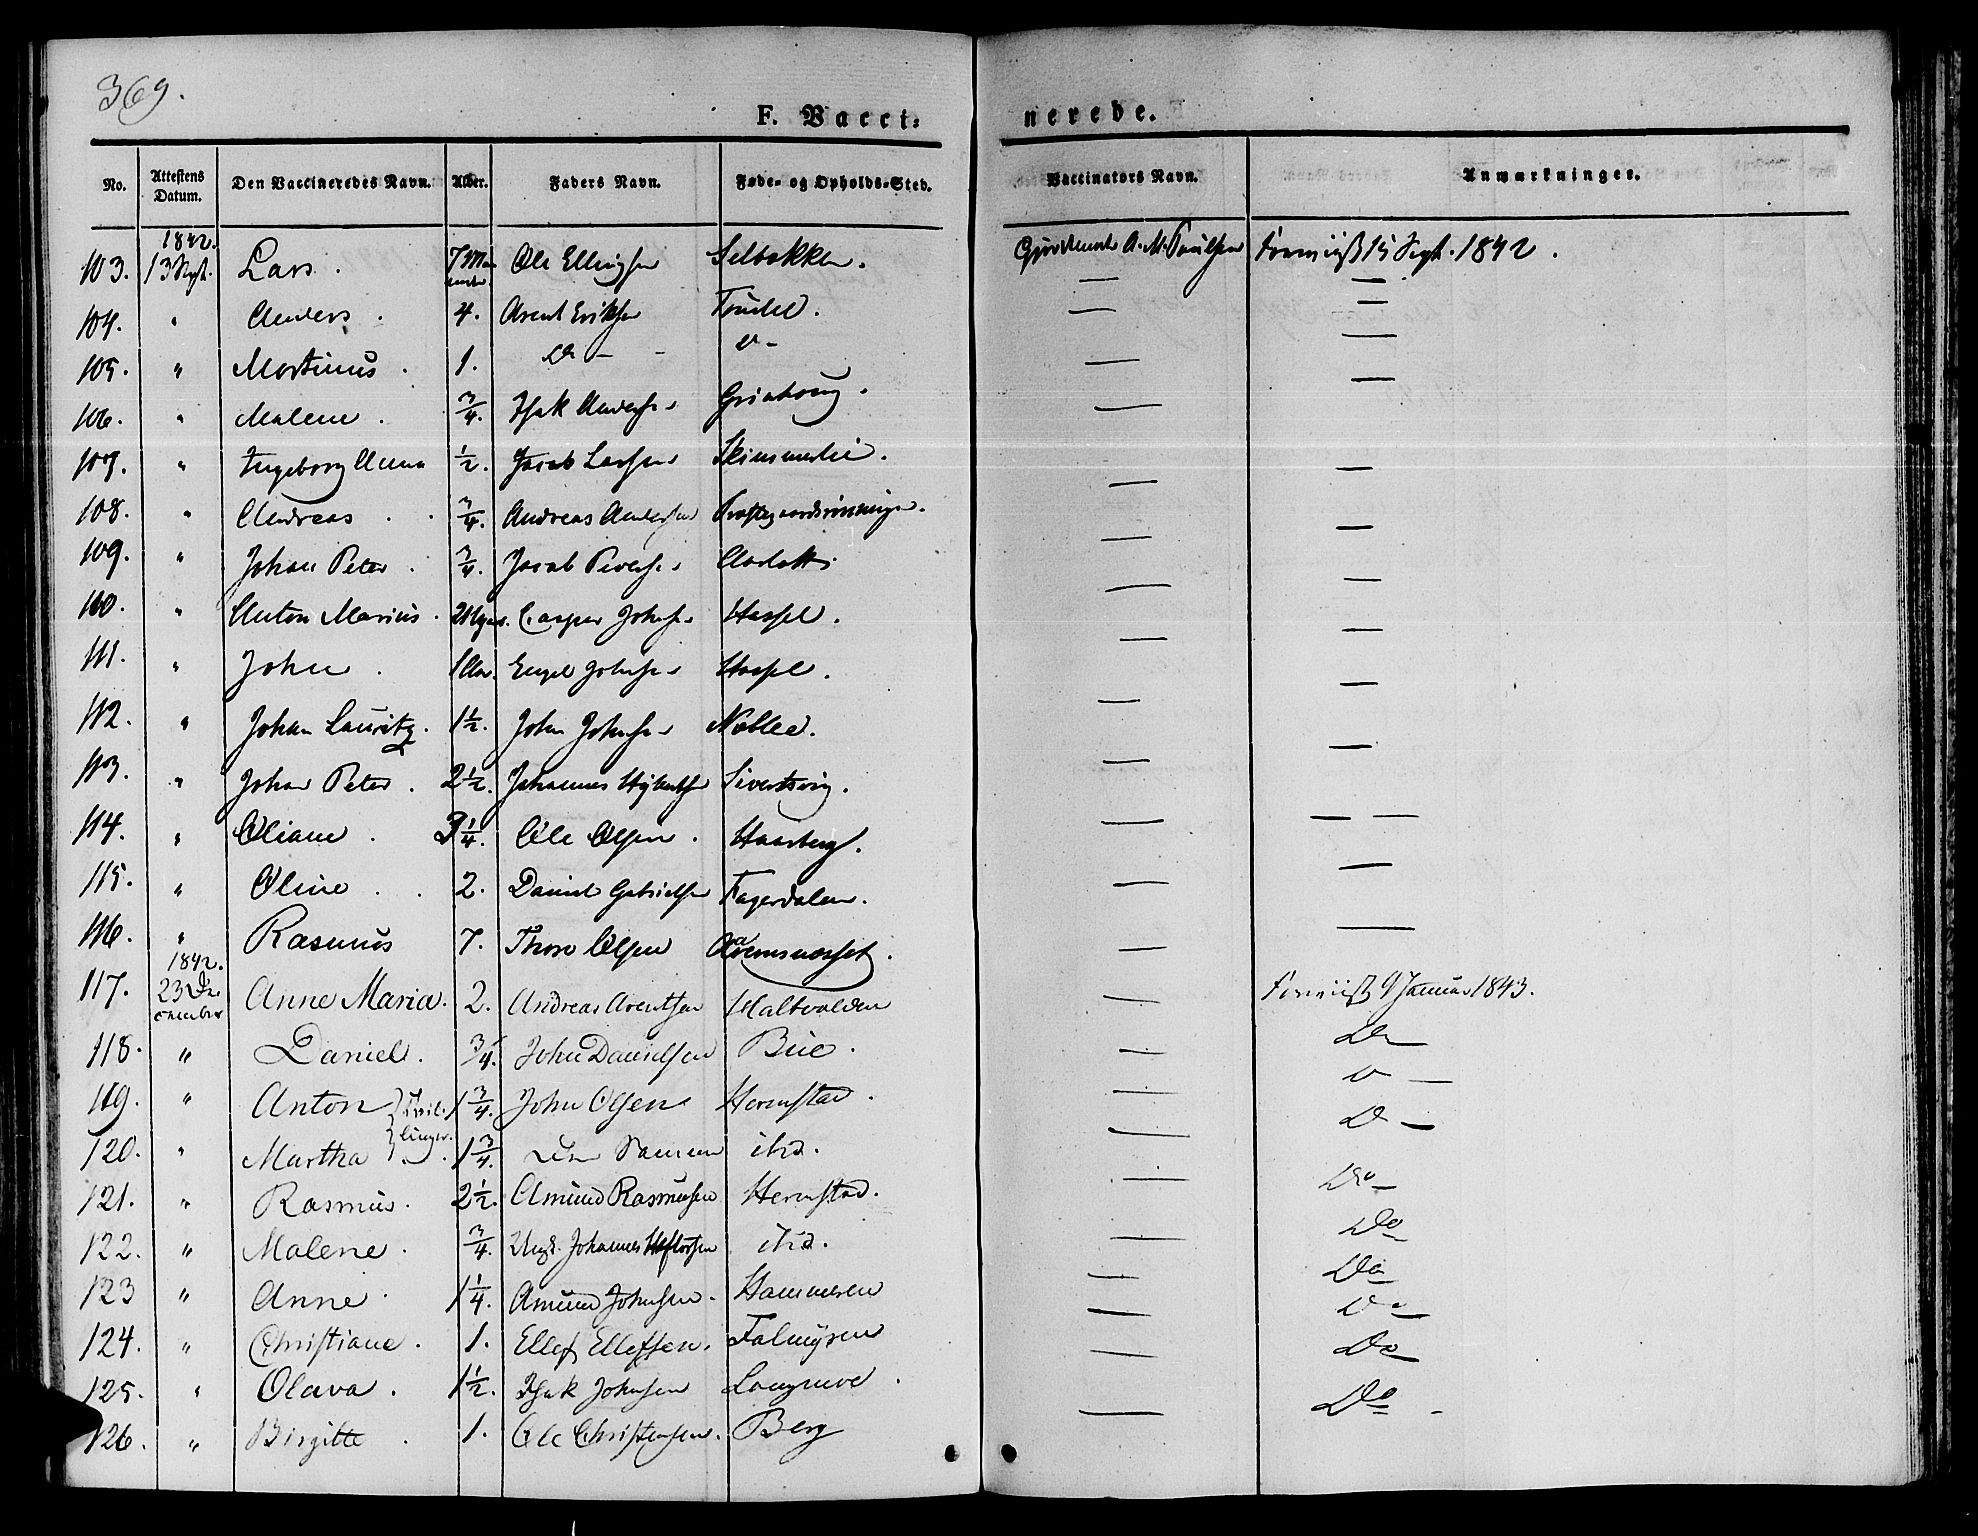 369.
F. Vacci- nerede.
No. Attestens Datum. Den Vaccineredes Navn. Alder. Faders Navn. Føde- og Opholds-Sted. Vaccinators Navn. Anmærkninger.
1842.
103. 13 Sept. Lars. 7 Maaneder Ole Ellingsen Selbakken. A. M. Poulsen 15 Sept. 1842.
104. " Anders. 4. Arent Eriksen — —
105. " Martinus. 1. D — D — — —
106. " Malene. 3/4. Isak Andersen — —
107. " Ingeborg Anna 1/2. Jacob Larsen Skimmerlie. — —
108. " Andreas. 3/4. Andreas Andersen — —
109. " Johan Peter. 3/4. Jacob — —
110. " Anton Marius. Casper Johnsen Hassel. — —
111. " John. 1 Aar. Engel Johnsen Hassel. — —
112. " Johan Lauritz. 1 1/2. John Johnsen — —
113. " Johan Peter. 2 1/2. Johannes Sivertsvig. — —
114. " Oliane. 3 1/4. Ole Olsen. Haarberg. — — —
115. " Oline. 2. Daniel Gabrielsen Fagerdalen. — —
116. " Rasmus 7. Thore Olsen — —
1842.
117. 23 December Anne Maria. 2. Andreas Arentsen Haltvolden — 9 Januar 1843.
118. " Daniel. 3/4. John Danielsen Bue. — Do
119. " Anton } Tvil- 1 3/4. John Olsen Hernstad. — D —
120. " Martha } linger. 1 3/4. Den Samme ibid. — D —
121. " Rasmus. 2 1/2. Amund Rasmussen Hernstad. — Do
122. " Malene. 3/4. Ungk. Johannes ibid. — Do
123 " Anne. 1 1/4. Amund Johnsen. Hammeren — Do
124. " Christiane. 1. Ellef Ellefsen. Falmyren — Do
125. " Olava. 1 1/2. Isak Johnsen — Do
126. " Birgitte. 1. Ole Christensen. Berg — Do